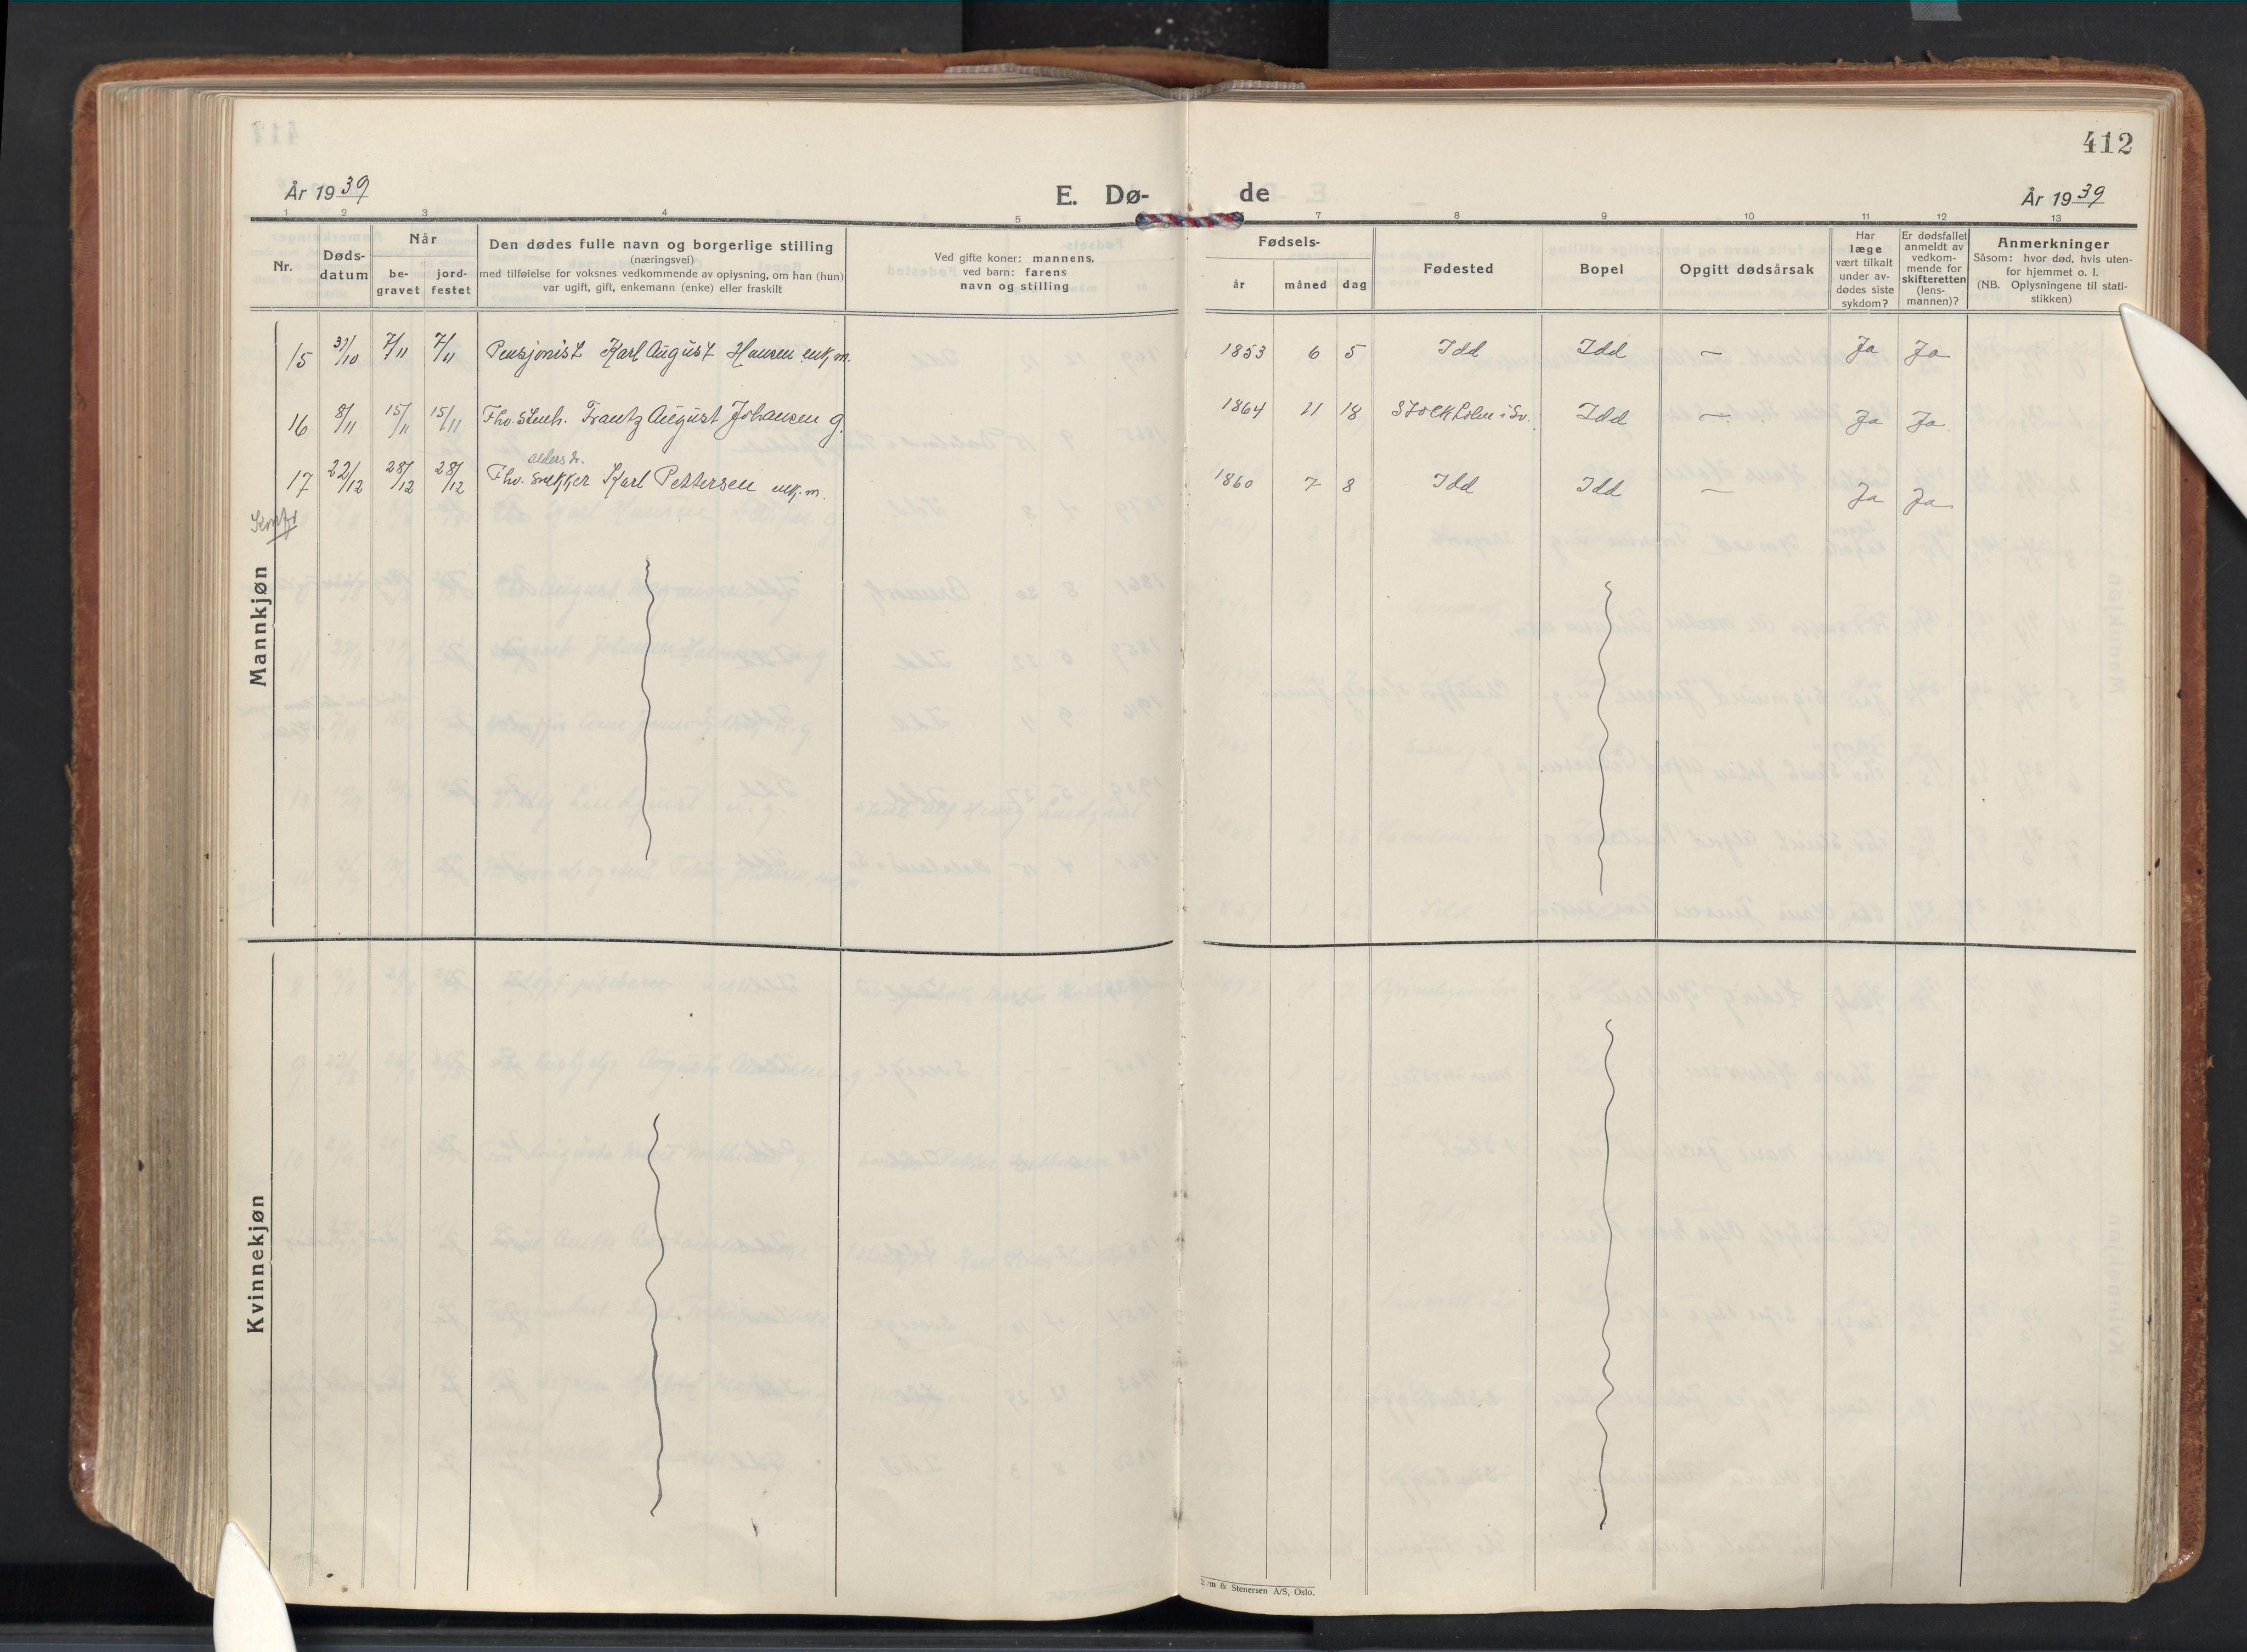 412
År 1939
E. Dø-
de
År 1939
1 2 3 4 5
7 8 9 10 11 12 13
Nr.
Døds-
datum
Når
be-
gravet
jord-
festet
Den dødes fulle navn og borgerlige stilling
(næringsvei)
med tilføielse for voksnes vedkommende av oplysning, om han (hun)
var ugift, gift, enkemann (enke) eller fraskilt
Ved gifte koner: mannens,
ved barn: farens
navn og stilling
Fødsels-
år
måned
dag
Fødested
Bopel
Opgitt dødsårsak
Har
læge
vært tilkalt
under av-
dødes siste
sykdom?
Er dødsfallet
anmeldt av
vedkom-
mende for
skifteretten
(lens-
mannen)?
Anmerkninger
Såsom: hvor død, hvis uten-
for hjemmet o. l.
(NB. Oplysningene til stati-
stikken)
15 31/10 7/11 7/11 Pensjonist Karl August Hansen enk.m. 1853 6 5 Idd Idd — Ja Ja
16 8/11 15/11 15/11 Fhv. Stenh. Frantz August Johansen g. 1864 11 18 Stockholm i Sv. Idd — Ja Ja
alderstr.
17 22/12 28/12 28/12 Fhv. Snekker Karl Pettersen enk.m. 1860 7 8 Idd Idd — Ja Ja
Konfr
Mannkjøn
Kvinnekjøn
& Stenersen A/S, Oslo.